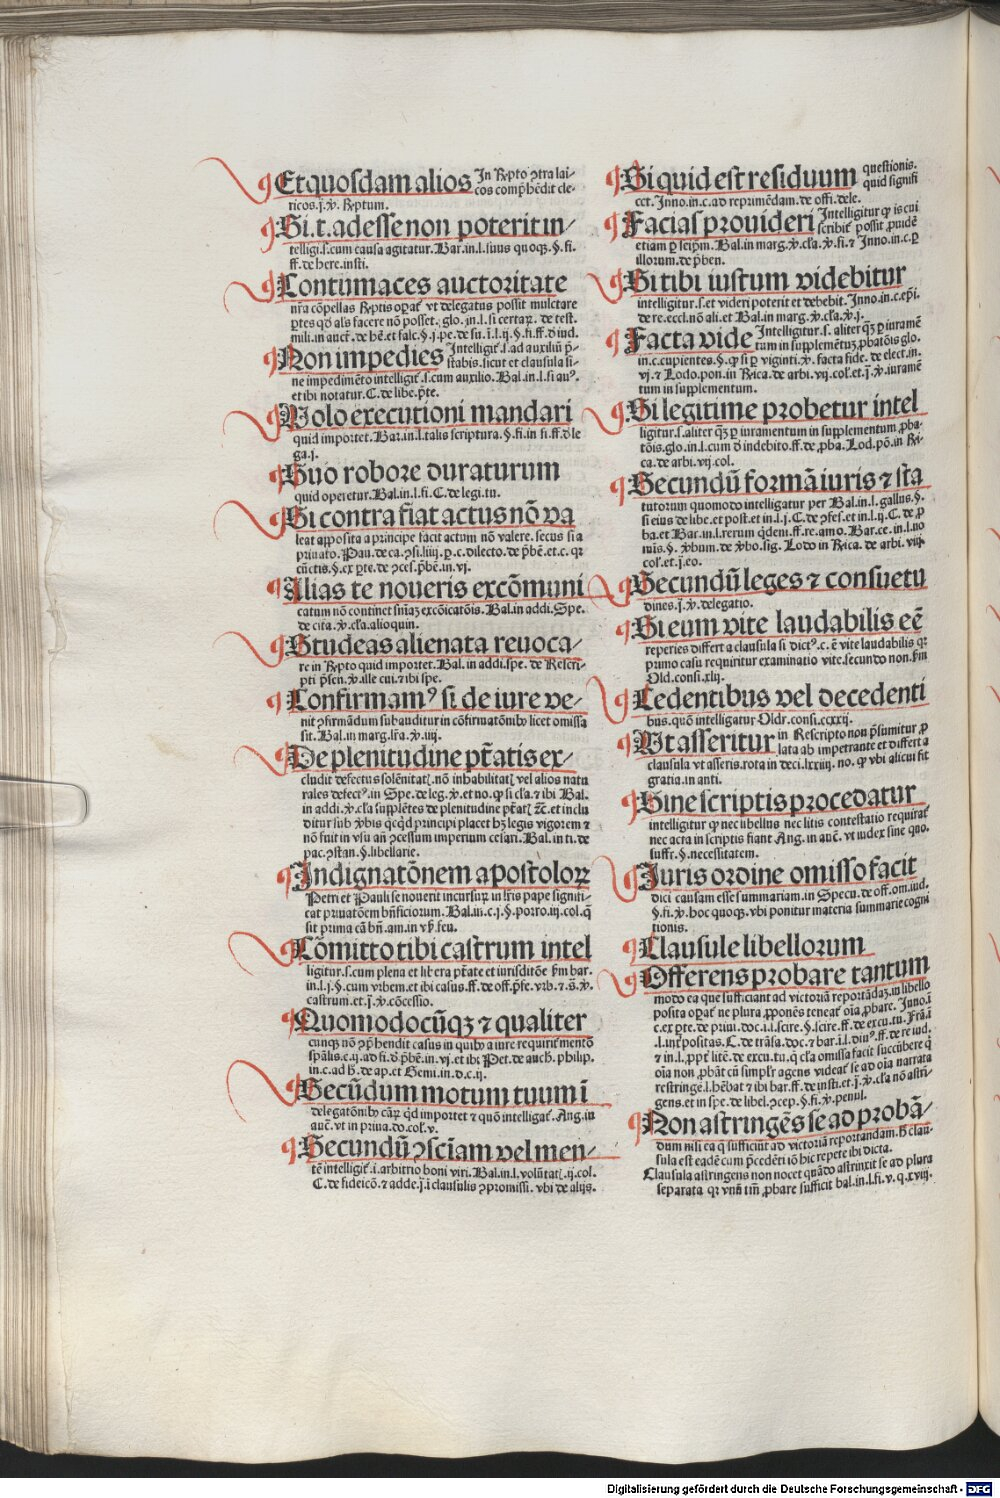 Et quosdam alios In Rēpto ɔtra lai⸗
cos comp̄hēdit cle⸗
ricos.j̄.ꝟ. Rēptum.
Si.t.adesse non poterit in⸗
telligi.s̄.cum causa agitatur. Bar.in.l.suus quoqꝫ. §.fi.
ff.de here.insti.
Contumaces auctoritate
nra cōpellas
ꝑtes qd̄ als facere nō posset. glo.in.l.si
Non impedies Intelligit̄ s̄.ad auxiliū p̄⸗
stabis.sicut et clausula si⸗
ne impedimēto intelligit̄ s̄.cum auxilio. Bal.in.l.si auꝰ.
et ibi notatur.C.de libe.p̄te.
Volo executioni mandari
quid importet. Bar.in.l.talis scriptura. §.fi.in fi.ff.d̄ le
ga.j.
Suo robore duraturum
quid operetur. Bal.in.l.fi.C.de legi.tu.
Si contra fiat actus nō va
leat apposita a principe facit actum nō valere. secus si a
priuato. Pau.de ca.ɔsi.liiij.
cūctis.§.ex ꝑte.de ɔces.p̄bē.in.vj.
Alias te noueris excōmuni
catum nō continet sn̄iaꝫ excōicatōis. Bal.in addi. Spe.
de cita.ꝟ.cl̄a.alioquin.
Studeas alienata reuoca⸗
re in Rēpto quid importet. Bal.in addi.spe. de Rescri⸗
pti p̄sen.ꝟ.ille cui.⁊ ibi spe.
Confirmamꝰ si de iure ve⸗
nit ɔfirmādum subauditur in cōfirmatōnibꝰ licet omissa
sit. Bal.in marg.lr̄a.ꝟ.iiij.
De plenitudine pt̄atis ex⸗
cludit defectus solēnitatꝭ.nō inhabilitatꝭ vel alios natu
rales defectꝰ.in Spe.de leg.ꝟ.et no.ꝙ si cl̄a.⁊ ibi Bal.
in addi.ꝟ.cl̄a supplētes de plenitudine pt̄atꝭ ⁊c̄.et inclu
ditur sub ꝟbis qcqd̄ principi placet hꝫ legis vigorem ⁊
nō fuit in vsu añ ɔcessum imperium cesari. Bal.in ti.de
pac.ɔstan.§.libellarie.
Indignatōnem apostoloꝝ
Petri et Pauli se nouerit incursuꝝ in lr̄is pape signifi⸗
cat priuatōem bn̄ficiorum. Bal.in.c.j.§.porro.iij.col.q̄
sit prima cā bn̄.am.in vƀ.feu.
Cōmitto tibi castrum intel
ligitur.s̄.cum plena et libera pt̄ate et iurisditōe
in.l.j.§.cum vrbem.et ibi casus.ff.de off.p̄fe.vrb.⁊.s̄.ꝟ.
castrum.et.j̄.ꝟ.cōcessio.
Quomodocūqꝫ ⁊ qualiter
cunqꝫ nō ɔp̄hendit casus in quibꝰ a iure requirit̄ mentō
sp̄alis.e.ij.ad fi.d̄ p̄bē.in.vj.et ibi Pet.de auch. philip.
in.c.ad h̄.de ap.et Gemi.in.d.c.ij.
Secūdum motum tuum ī
delegatōnibꝰ cāꝝ qd̄ importet ⁊ quō intelligat̄. Ang.in
auē. vt in priua.do.col.v.
Secundū ɔsciam vel men⸗
tē intelligit̄.i.arbitrio boni viri. Bal.in.l.volūtatꝭ.ij.col.
C.de fideicō.⁊ adde.j̄.i clausulis ɔpromissi. vbi de alijs.
Si quid est residuum questionis.
quid signifi
cet. Inno.in.c.ad reprimēdam.de offi.dele.
Facias prouideri Intelligitur ꝙ is cui
scribit̄ possit ꝓuidē
etiam ꝑ seip̄m. Bal.in marg.ꝟ.cl̄a.ꝟ.fi.⁊ Inno.in.c.ꝑ
illorum.de p̄ben.
Si tibi iustum videbitur
intelligitur.s̄.et videri poterit et debebit. Inno.in.c.ep̄i.
de re.eccl.nō ali.et Bal.in marg.ꝟ.cl̄a.ꝟ.j.
Facta vide Intelligitur.s̄. aliter qꝫ ꝑ iuramē
tum in supplemētuꝫ ꝓbatōis glo.
in.c.cupientes.§.ꝙ si ꝑ viginti.ꝟ. facta fide. de elect.in.
vj.⁊ Lodo.pon.in Rrica.de arbi.vij.col.et.j̄.ꝟ.iuramē
tum in supplementum.
Si legitime probetur intel
ligitur.s̄.aliter qꝫ ꝑ iuramentum in supplementum ꝓba⸗
tōis.glo.in.l.cum d̄ indebito.ff.de ꝓba. Lod.pō.in Rri⸗
ca.de arbi.vij.col.
Secundū formā iuris ⁊ sta
tutorum quomodo intelligatur per Bal.in.l.gallus.§.
si eius de libe.et post.et in.l.j.C.de ɔfes.et in.l.ij.C.de ꝓ
ba.et Bar.in.l.rerum
Lodo in Rrica. de arbi. viij.
col.et.j̄.eo.
Secundū leges ⁊ consuetu
dines.j̄.ꝟ.delegatio.
Si eum vite laudabilis eē
reperies differt a clausula si dictꝰ.c.ē vite laudabilis qꝛ
primo casu requiritur examinatio vite.secundo non.
Old.consi.xlij.
Cedentibus vel decedenti
bus.quō intelligatur Oldr.consi.ccxxij.
Vt asseritur in Rescripto non p̄sumitur ꝓ
lata ab impetrante et differt a
clausula vt asseris.rota in deci.lxxiij. no. ꝙ vbi alicui fit
gratia.in anti.
Sine scriptis procedatur
intelligitur ꝙ nec libellus nec litis contestatio requirat̄
nec acta in scriptis fiant Ang.in auē. vt iudex sine quo.
suffr.§.necessitatem.
Iuris ordine omisso facit
dici causam esse summariam.in Specu.de off.om.iud.
§.fi.ꝟ.hoc quoqꝫ.vbi ponitur materia summarie cogni
tionis.
Clausule libellorum
Offerens probare tantum
modo ea que sufficiant ad victoriā reportādaꝫ.in libello
posita oꝑat̄ ne plura ꝓponēs teneat̄ oīa ꝓbare.
oīa non ꝓbāt cū simplr̄ agens videat̄ se ad oīa narrata
gens.et in spe.de libel.ɔcep.§.fi.ꝟ.penul.
Non astringēs se ad probā⸗
dum nisi ea q̄ sufficiūt ad victoriā reportandam.h̄ clau⸗
sula est eadē cum p̄cedēti iō hic repete ibi dicta.
Clausula astringens non nocet quādo astrinxit se ad plura
separata qꝛ vnū tm̄ ꝓbare sufficit bal.in.l.fi.v.q.xviij.
Digitalisierung gefördert durch die Deutsche Forschungsgemeinschaft - DFG